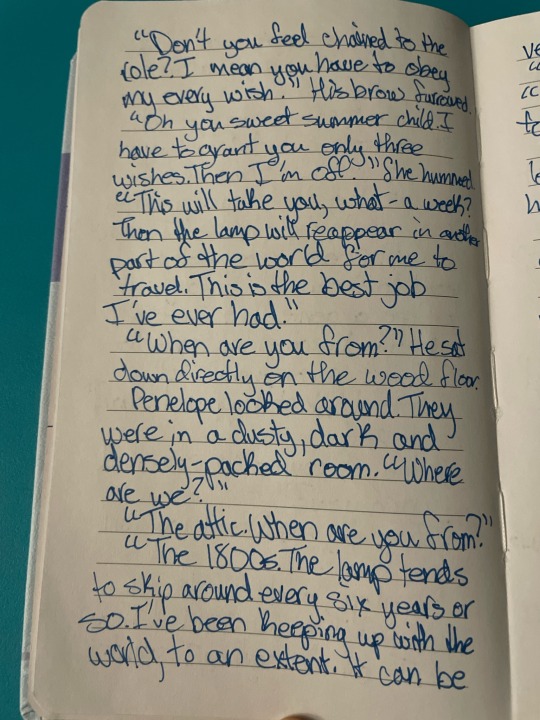 "Don't you feel chained to the
role? I mean you have to obey
my every wish." His brow furrowed.
"Oh you sweet summer child. I
have to grant you only three
wishes. Then I'm off." She hummed
"This will take you, what - a week?
Then the lamp will reappear in another
part of the world for me to
travel. This is the best job
I've ever had."
"When are you from?" He sat
down directly on the wood floor.
Penelope looked around. They
were in a dusty, dark and
densely-packed room. "Where
are we?"
"The attic. When are you from?"
"The 1800s. The lamp tends
to skip around every six years or
so. I've been keeping up with the
world, to an extent. It can be